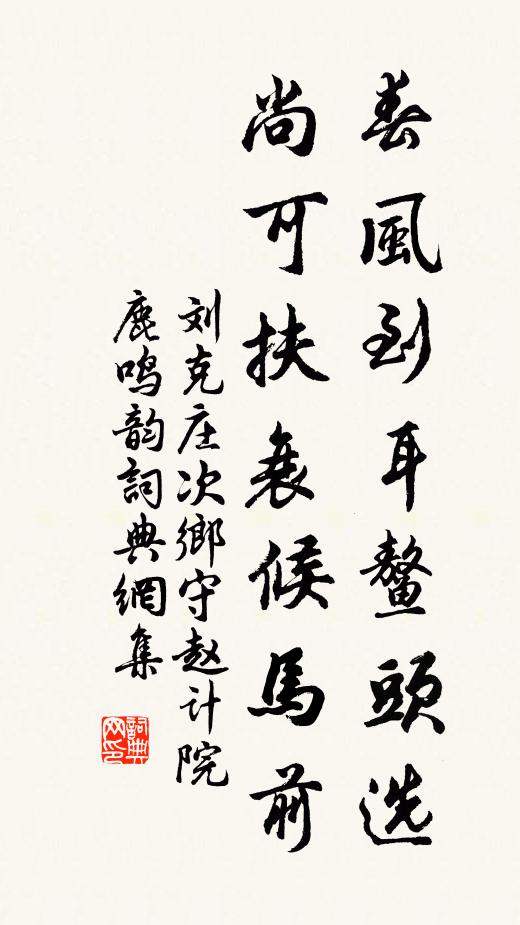 春風到耳鳌頭选
尚可扶衰候馬前
刘克庄次鄉守赵计院
鹿鸣韵詞典網集
詞典
网印